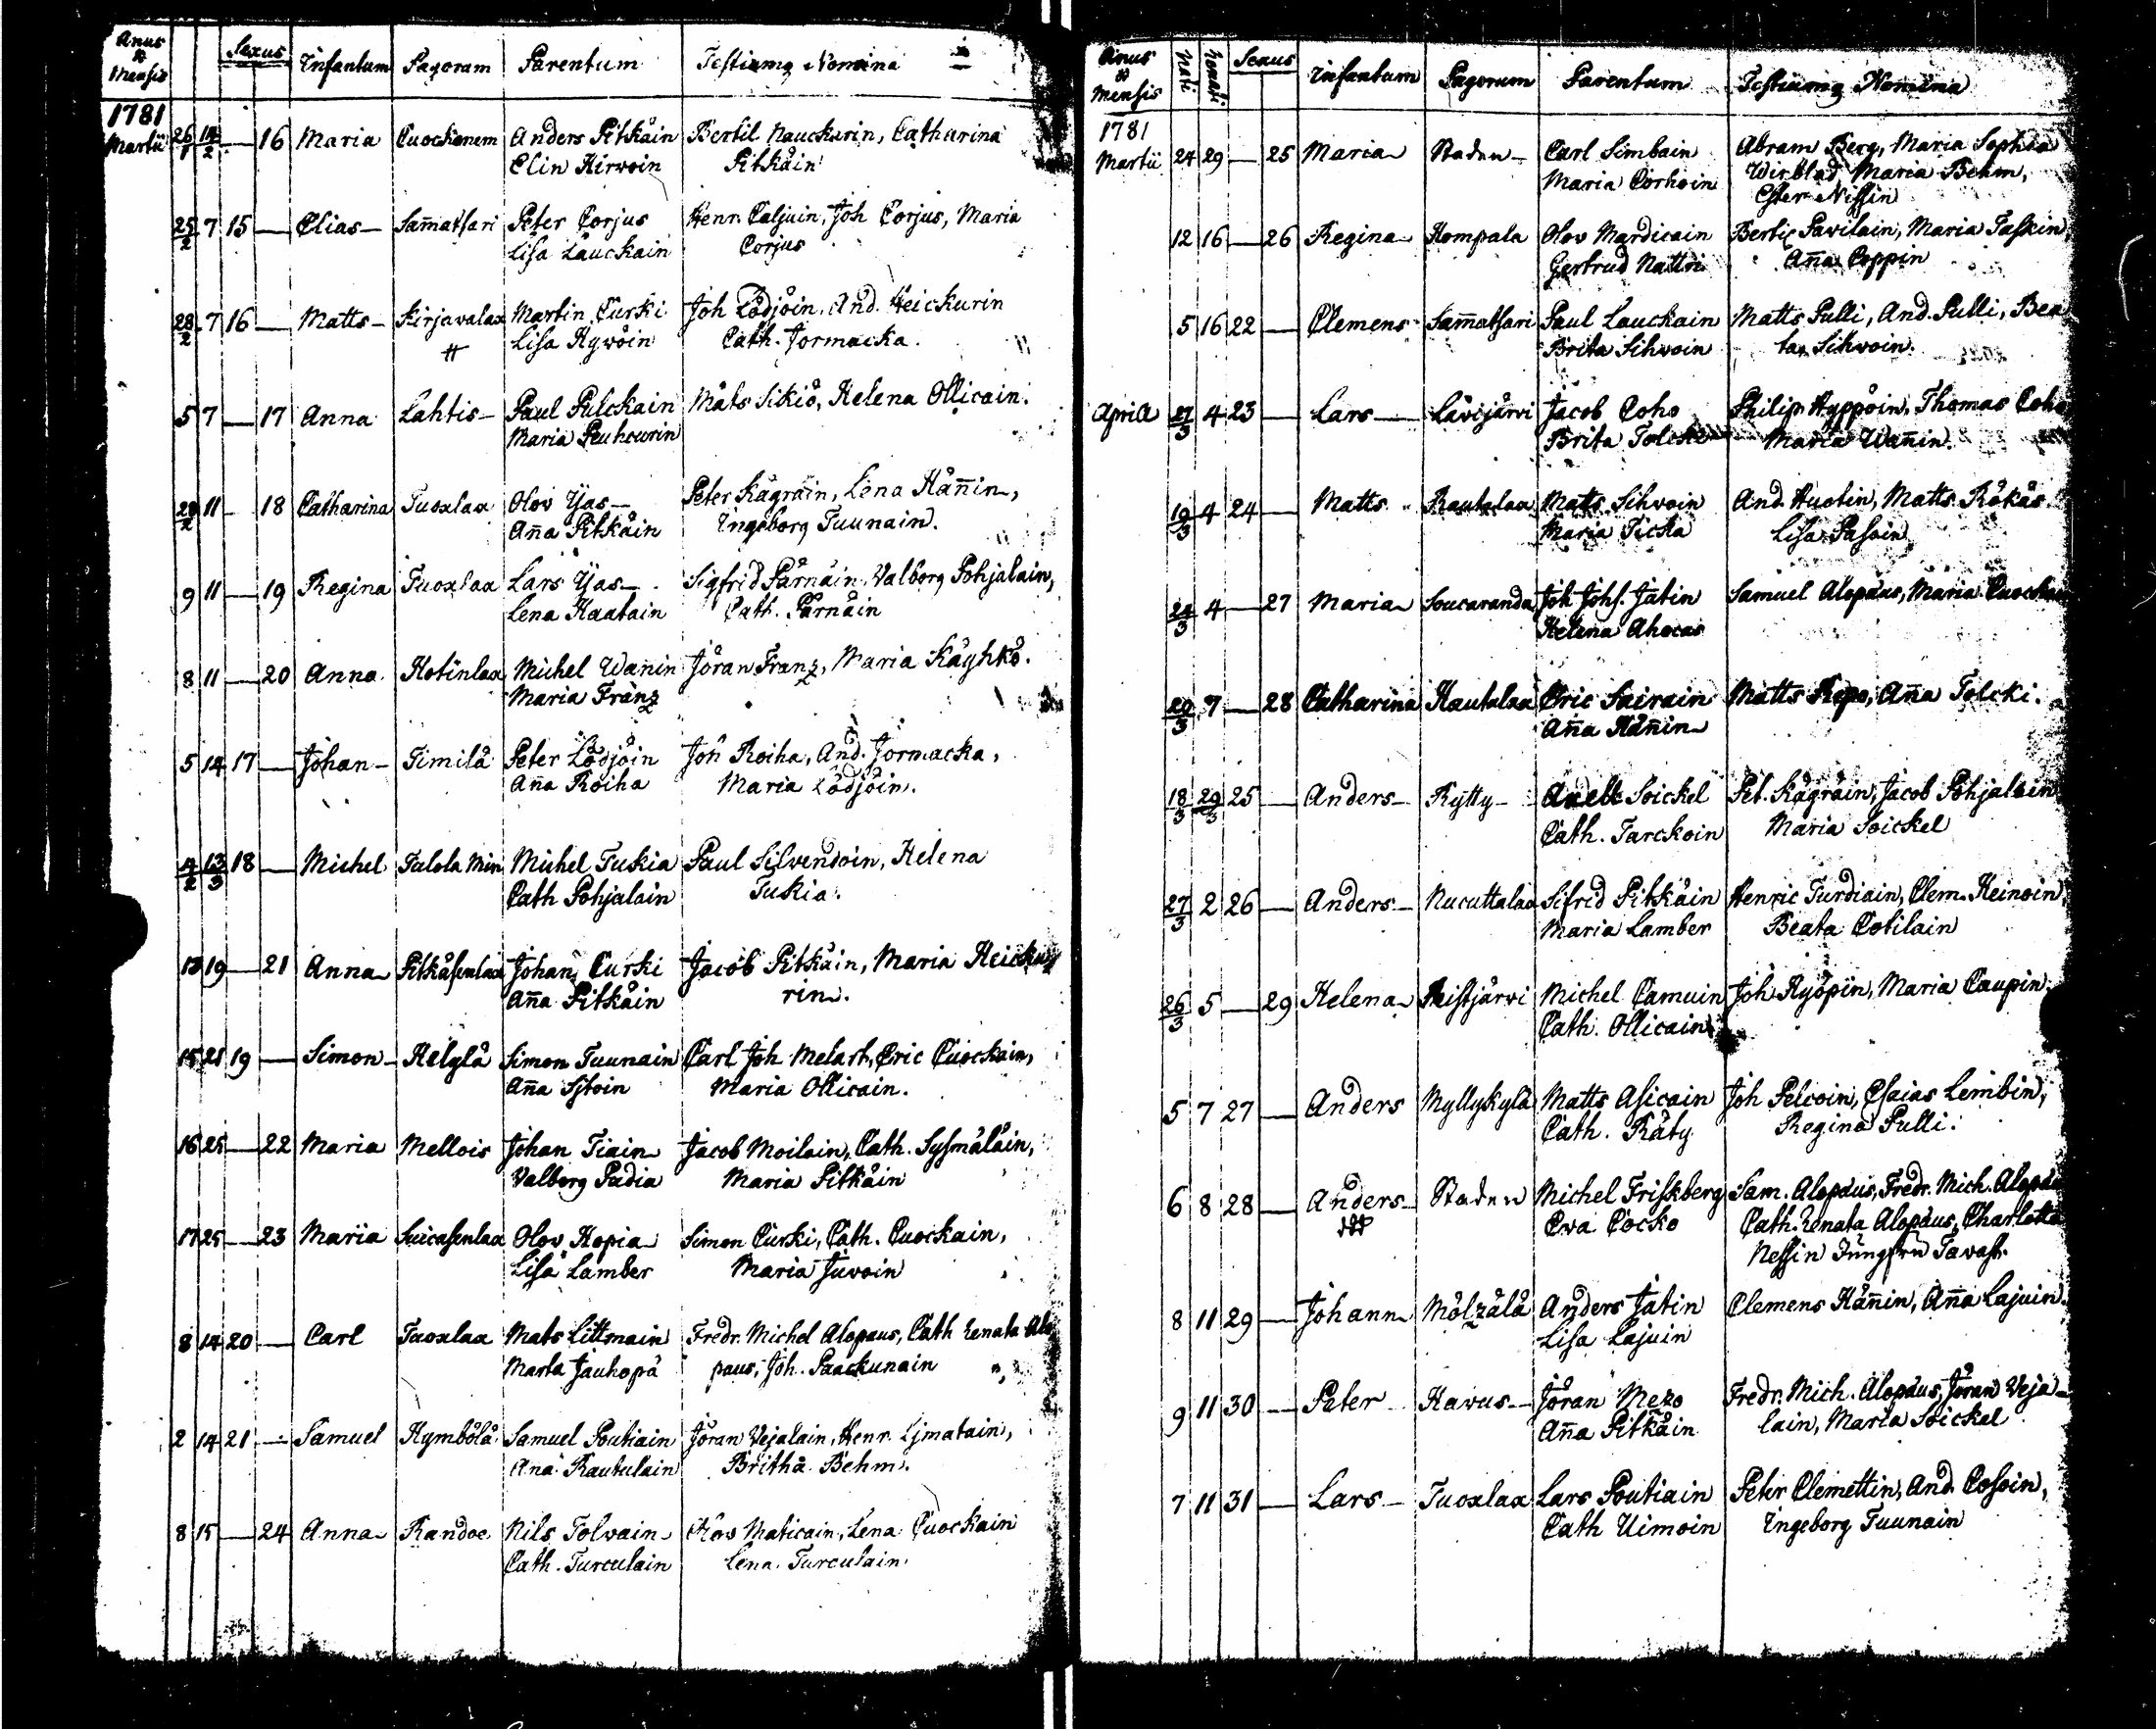 Anus & Mensis Sexus Infantum Pagorum Parentum Testiumq Nomina
1781
Martii 26/1 14/2 — 16 Maria Cuockonem Anders Pitkäin Bertil Nauckarin, Catharina
Elin Hirvoin Pitkäin
25/2 7 15 — Elias — Sam̄atsari Peter Corjus Henr. Caljuin, Joh Corjus, Maria
Lisa Lauckain Corjus
28/2 7 16 — Matts — Kirjavalax Martin Curki Joh Lödjöin, And. Heickurin
# Lisa Hyvöin Cath. Jormacka.
5 7 — 17 Anna Lahtis — Paul Pulckain Mats Sikiö, Helena Ollicain.
Maria Peuhcurin
28/2 11 — 18 Catharina Tuoxlax Olov Yas — Peter Kägräin, Lena Hän̄in,
An̄a Pitkäin Ingeborg Tuunain.
9 11 — 19 Regina Tuoxlax Lars Yas — Sigfrid Pärnäin, Valborg Pohjalain,
Lena Haatain Cath. Pärnäin
8 11 — 20 Anna Hotinlax Michel Wanin Jöran Franz, Maria Käyhkö.
Maria Franz
5 14 17 — Johan — Timilä Peter Lödjöin Joh Roiha, And. Jormacka,
An̄a Roiha Maria Lödjöin.
4/2 13/3 18 — Michel Talola Min Michel Tukia Paul Silvendoin, Helena
Cath Pohjalain Tukia.
13 19 — 21 Anna Pitkäsenlax Johan Curki Jacob Pitkäin, Maria Heicku
An̄a Pitkäin rin.
15 25 19 — Simon — Helylä Simon Tuunain Carl Joh Melart, Eric Cuockain,
An̄a Sjtoin Maria Ollicain.
16 25 — 22 Maria Mellois Johan Tiain Jacob Moilain, Cath. Sysmäläin,
Valborg Padia Maria Pitkäin
17 25 — 23 Maria Suicasenlax Olov Hopia Simon Curki, Cath. Cuockain,
Lisa Lamber Maria Juvoin
8 14 20 — Carl Tuoxlax Mats Littmain Fredr. Michel Alopaus, Cath Renata Alo
Marta Jauhopä paus, Joh. Paackunain
2 14 21 — Samuel Hymbölä Samuel Poutiain Jöran Vejalain, Henr. Ljmatain,
Ana Rautulain Britha Behm.
8 15 — 24 Anna Randoe Nils Tolvain Olov Maticain, Lena Cuockain
Cath. Turculain Lena Turculain.
Anus & Mensis Nati Renati Sexus Infantum Pagorum Parentum Testiumq Nomina
1781
Martii 24 29 — 25 Maria Staden — Carl Simbain Abram Berg, Maria Sophia
Maria Corhoin Wirblad, Maria Behm,
Ester Nissin
12 16 — 26 Regina Hompala Olov Mardicain Bertil Pavilain, Maria Taskin,
Gertrud Nattri An̄a Poppin
5 16 22 — Clemens Sam̄atsari Paul Lauckain Matts Pulli, And. Pulli, Bea
Brita Sihvoin ta Sihvoin.
Aprill 27/3 4 23 — Lars — Lävijärvi Jacob Coho Philip Hyppöin, Thomas Coho
Brita Tolcki Maria Wan̄in.
19/3 4 24 — Matts Rautalax Matts Sihvoin And. Huotin, Matts Räkäs
Maria Ticka Lisa Pasoin
24/3 4 — 27 Maria Soucaranda Joh Johs. Jatin Samuel Alopäus, Maria Cuockain
Helena Ahocas
20/3 7 — 28 Catharina Hautalax Eric Sairain Matts Repo, An̄a Tolcki.
An̄a Hän̄in
18/3 29/3 25 — Anders — Rytty — Soickel Pet. Kägräin, Jacob Pohjalain
Cath. Tarckoin Maria Soickel
27/3 2 26 — Anders — Nucuttalax Sifrid Pitkäin Henric Turdiain, Clem. Heinoin,
Maria Lamber Beata Cotilain
26/3 5 — 29 Helena Reistjärvi Michel Camuin Joh Ryöpin, Maria Caupin.
Cath. Ollicain
5 7 27 — Anders Myllykylä Matts Asicain Joh Pelcoin, Esaias Lembin,
Cath. Räty Regina Pulli.
6 8 28 — Anders Staden Michel Friskberg Sam. Alopäus, Fredr. Mich. Alopäu
Eva Cocko Cath. Renata Alopäus, Charlotta
Nessin Jungfru Tavast.
8 11 29 — Johann Mölzälä Anders Jatin Clemens Hän̄in, An̄a Lajuin.
Lisa Lajuin
9 11 30 — Peter Havus — Jöran Mezo Fredr. Mich. Alopäus, Jöran Veja-
An̄a Pitkäin lain, Maria Soickel
7 11 31 — Lars — Tuoxlax Lars Poutiain Peter Clemettin, And. Cosoin,
Cath Uimoin Ingeborg Tuunain